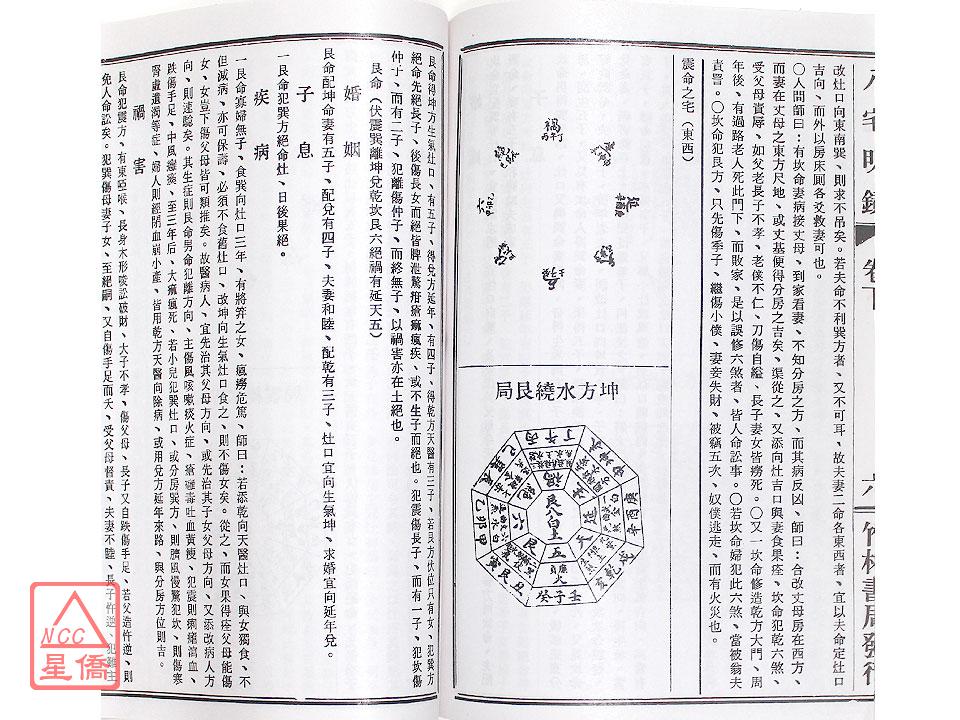 八宅明鏡 卷下
六一 竹林書局發行
改灶口向東南巽、則求不吊矣。若夫命不利巽方者、又不可耳、故夫妻二命各東西者、宜以夫命定灶口
吉向、而外以房床厠各爻救妻可也。
〇人間師曰：有坎命妻病接丈母、到家看妻、不知分房之方、而其病反凶、師曰：合改丈母房在西方、
而妻在丈母之東方尺地、或丈基便得分房之吉矣、渠從之、又添向灶吉口與妻食果痊、坎命犯乾六煞、
受父母責辱、如父老長子不孝、老僕不仁、刀傷自縊、長子妻女皆癆死。〇又一坎命修造乾方大門、周
年後、有過路老人死此門下、而敗家、是以誤修六煞者、皆人命訟事。〇若坎命婦犯此六煞、當被翁夫
責詈。〇坎命犯艮方、只先傷季子、繼傷小僕、妻妾失財、被竊五次、奴僕逃走、而有火災也。
震命之宅（東西）
坤方水繞艮局
丁午丙
庚酉辛
戌乾亥
壬子癸
丑艮寅
甲卯乙
禍
延
天
五
六
艮八白土
廉貞火
艮命得坤方生氣灶口、有五子、得兌方延年、有四子、得乾方天醫有三子、若艮方伏位只有女、犯巽方
絕命先絕長子、後傷長女而絕皆脾泄驚疳瘡痲瘋疾、或不生子而絕也。犯震傷長子、而有一子、犯坎傷
仲子、而有二子、犯離傷仲子、而終無子、以禍害亦在土絕也。
艮命（伏震巽離坤兌乾坎艮六絕禍有延天五）
婚姻
艮命配坤命妻有五子、配兌有四子、夫妻和睦、配乾有三子、灶口宜向生氣坤、求婚宜向延年兌。
子息
一艮命犯巽方絕命灶、日後果絕。
疾病
一艮命寡婦無子、食巽向灶口二年、有將笄之女、瘋癆危篤、師曰：若添乾向天醫灶口、與女獨食、不
但減病、亦可保壽、必須不食舊灶口、改坤向生氣灶口食之、則不傷女矣。從之、而女果得痊父母能傷
女、女豈下傷父母皆可類推矣。故醫病人、宜先治其父母方向、或先治其子女父母方向、又添改病人方
向、則速騐矣。其生症則艮命男命犯離方向、主傷風咳嗽痰火症、瘡癰毒吐血黃瘦、犯震則痢瘧瀉血、
跌傷手足、中風癱瘓、至三年后、大痲瘋死、若小兒犯巽灶口、或分房巽方、則臍風慢驚犯坎、則傷寒
腎虛遺濁等症、婦人則經閉血崩小產、皆用乾方天醫向除病、或用兌方延年來路、與分房方位則吉。
禍害
艮命犯震方、有東啞喉、長身木形被訟破財、大子不孝、傷父母、長子又自跌傷手足、若父造忤逆、則
免人命訟矣。犯巽傷母妻子女、至絕嗣、又自傷手足而夭、受父母督責、夫妻不睦、長子忤逆、犯離主
NCC
星僑